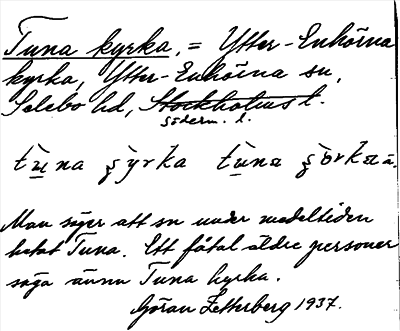 Tuna kyrka, = Ytter-Enhörna
kyrka, Ytter-Enhörna sn,
Selebo hd, Stockholms l.
söderm. l.
tùna ʂ̀yrka tùna ʂ̀örka
Man säger att sn under medeltiden
hetat Tuna. Ett fåtal äldre personer
säga ännu Tuna kyrka.
Göran Zetterberg 1937.